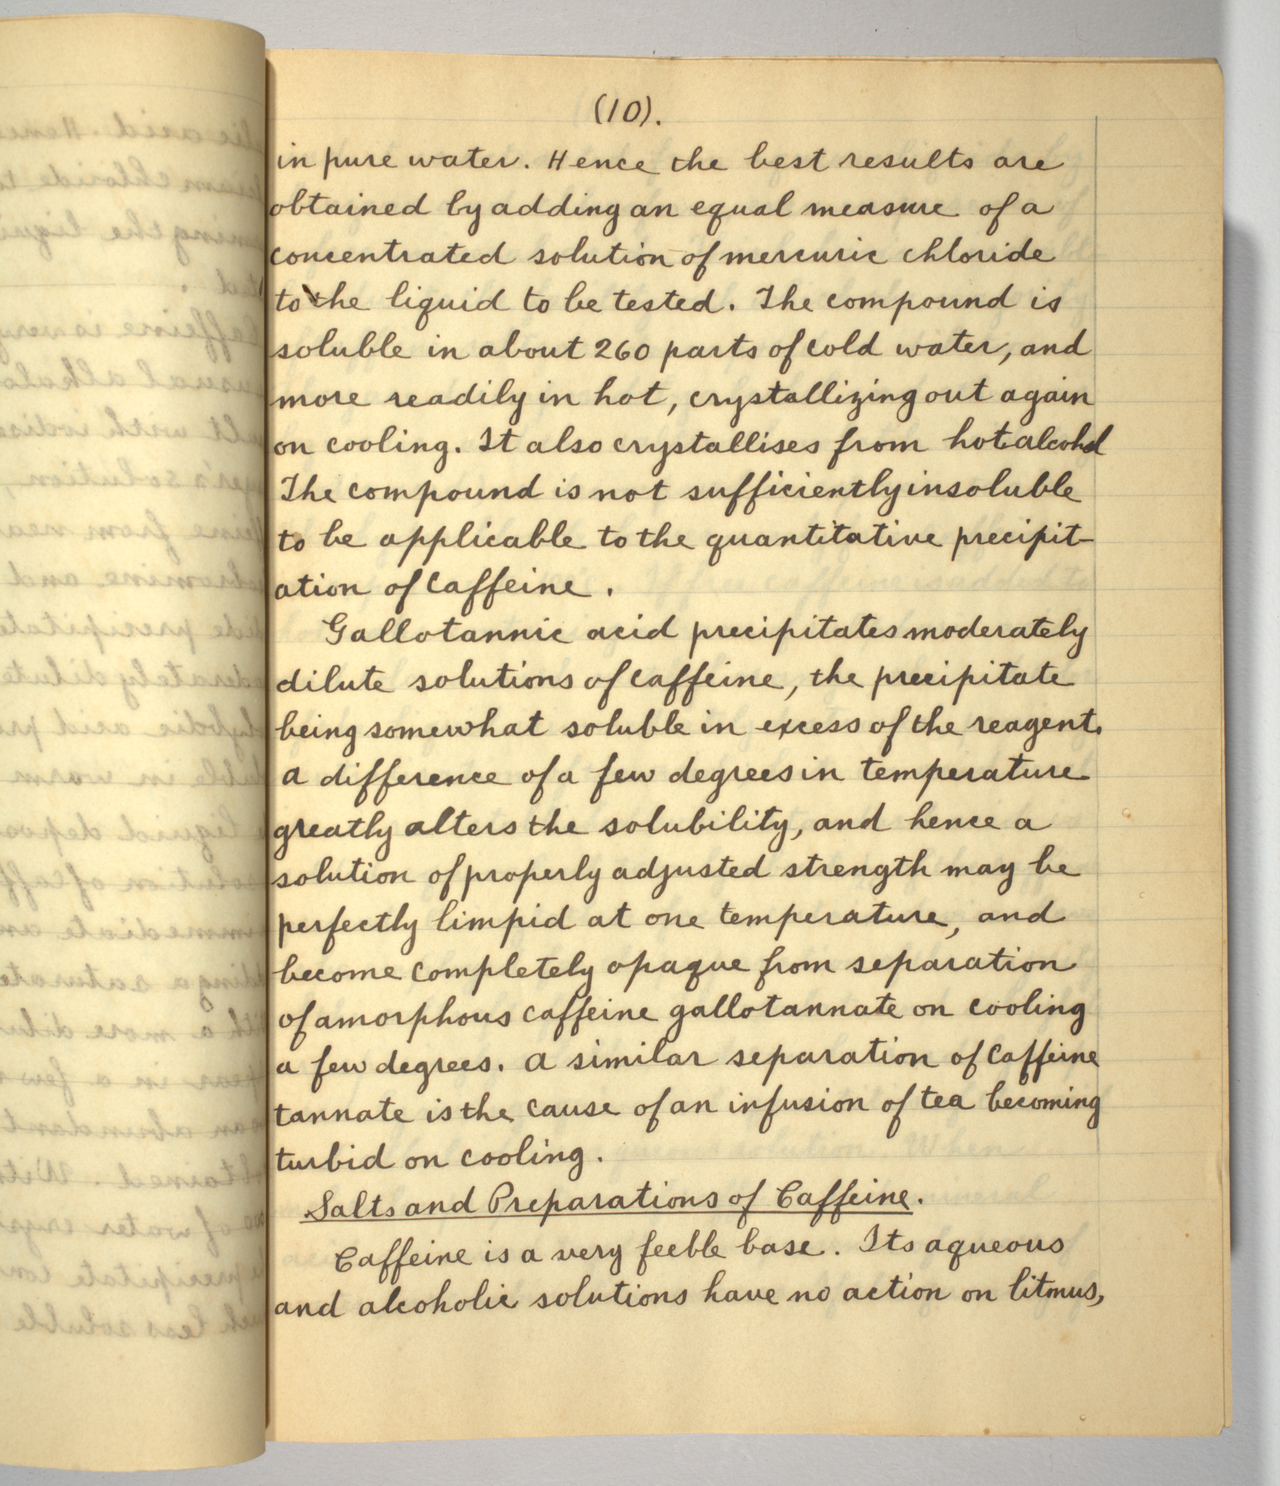 (10).
in pure water. Hence the best results are
obtained by adding an equal measure of a
concentrated solution of mercuric chloride
to the liquid to be tested. The compound is
soluble in about 260 parts of cold water, and
more readily in hot, crystallizing out again
on cooling. It also crystallises from hot alcohol
The compound is not sufficiently insoluble
to be applicable to the quantitative precipit-
ation of caffeine.
Gallotannic acid precipitates moderately
dilute solutions of caffeine, the precipitate
being somewhat soluble in excess of the reagent.
A difference of a few degrees in temperature
greatly alters the solubility, and hence a
solution of properly adjusted strength may be
perfectly limpid at one temperature, and
become completely opaque from separation
of amorphous caffeine gallotannate on cooling
a few degrees. A similar separation of caffeine
tannate is the cause of an infusion of tea becoming
turbid on cooling.
Salts and Preparations of Caffeine.
Caffeine is a very feeble base. Its aqueous
and alcoholic solutions have no action on litmus,